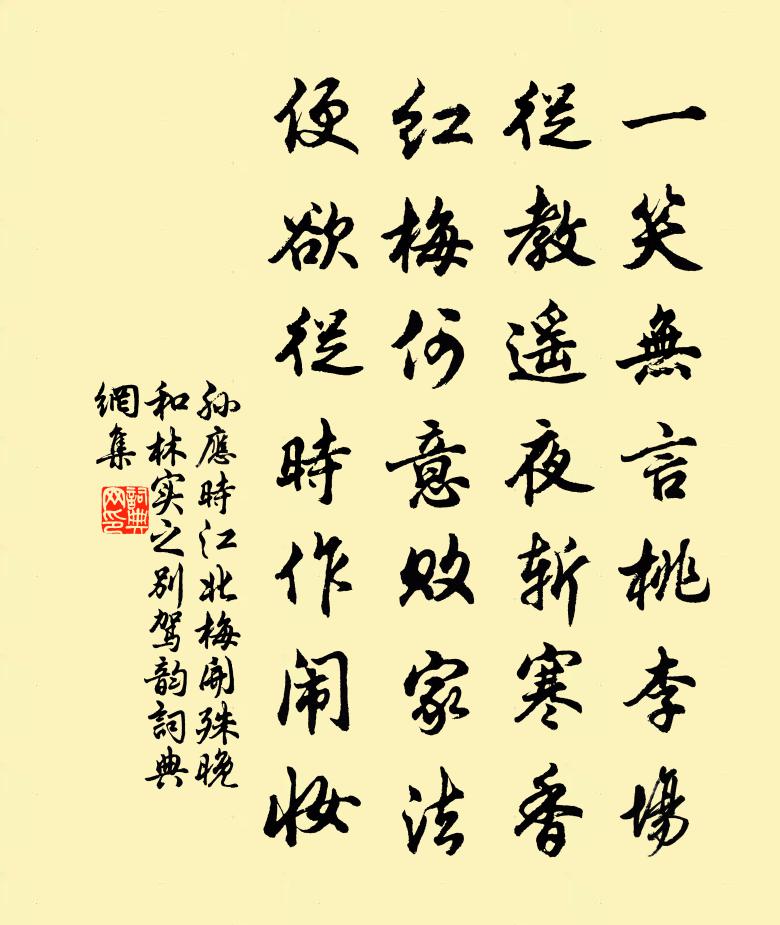 一笑無言桃李場
從教遥夜斬寒香
紅梅何意敗家法
便欲從時作闹妝
孫應時江北梅開殊晚
和林实之别駕韵詞典
網集
詞典
网印